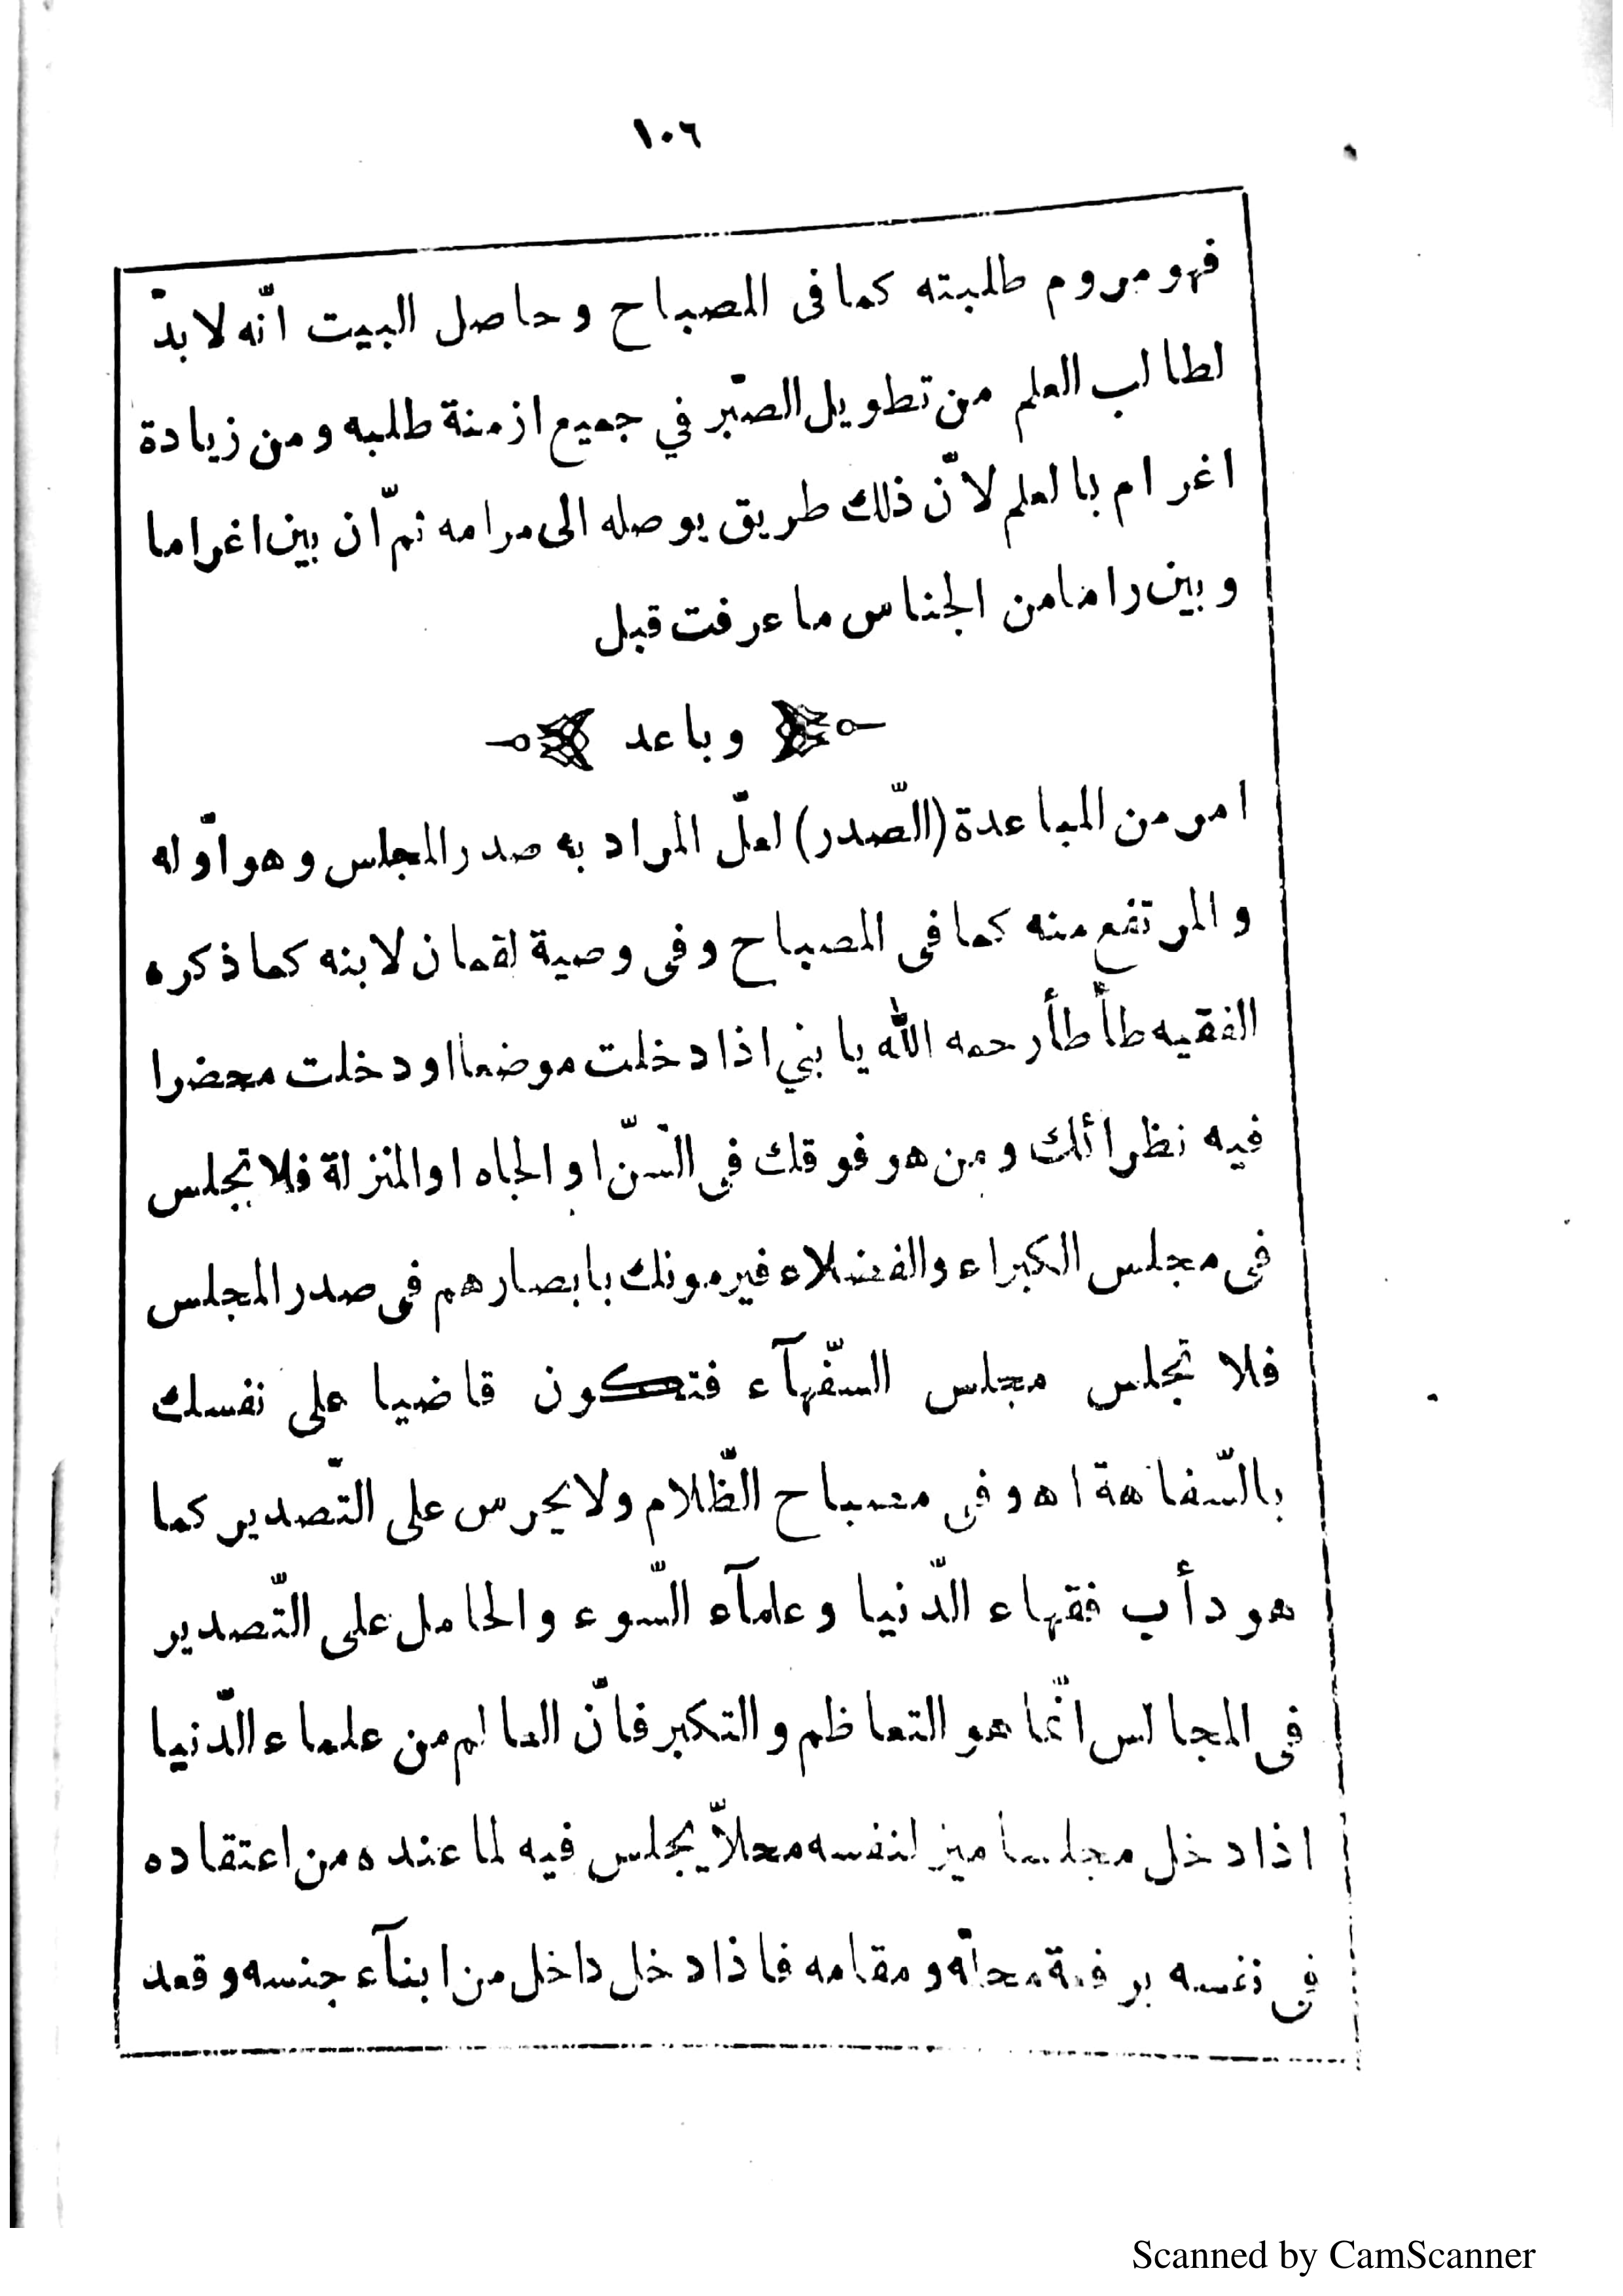 ١٠٦
فهو مروم طلبته كما فى المصباح و حاصل البيت انّه لا بدّ
لطالب العلم من تطويل الصّبر في جميع ازمنة طلبه و من زيادة
اغرام بالعلم لانّ ذلك طريق يوصله الى مرامه ثمّ ان بين اغراما
و بين راما من الجناس ما عرفت قبل
و باعد
امر من المباعدة (الصّدر) لعلّ المراد به صدر المجلس و هو اوّله
و المرتفع منه كما فى المصباح و فى وصية لقمان لابنه كما ذكره
الفقيه طأطأ رحمه الله يا بني اذا دخلت موضعا او دخلت محضرا
فيه نظرائك و من هو فوقك فى السّنّ او الجاه او المنزلة فلا تجلس
فى مجلس الكبراء و الفضلاء فيرمونك بابصارهم فى صدر المجلس
فلا تجلس مجلس السّفهآء فتكون قاضيا على نفسك
بالسّفاهة ا هـ و فى مصباح الظّلام و لا يحرس على التّصدير كما
هو دأب فقهاء الدّنيا و علمآء السّوء و الحامل على التّصدير
فى المجالس انّما هو التعاظم و التكبر فانّ العالم من علماء الدّنيا
اذا دخل مجلسا ميز لنفسه محلاّ يجلس فيه لما عنده من اعتقاده
فى نفسه برفعة محلّه و مقامه فاذا دخل داخل من ابنآء جنسه و قعد
Scanned by CamScanner